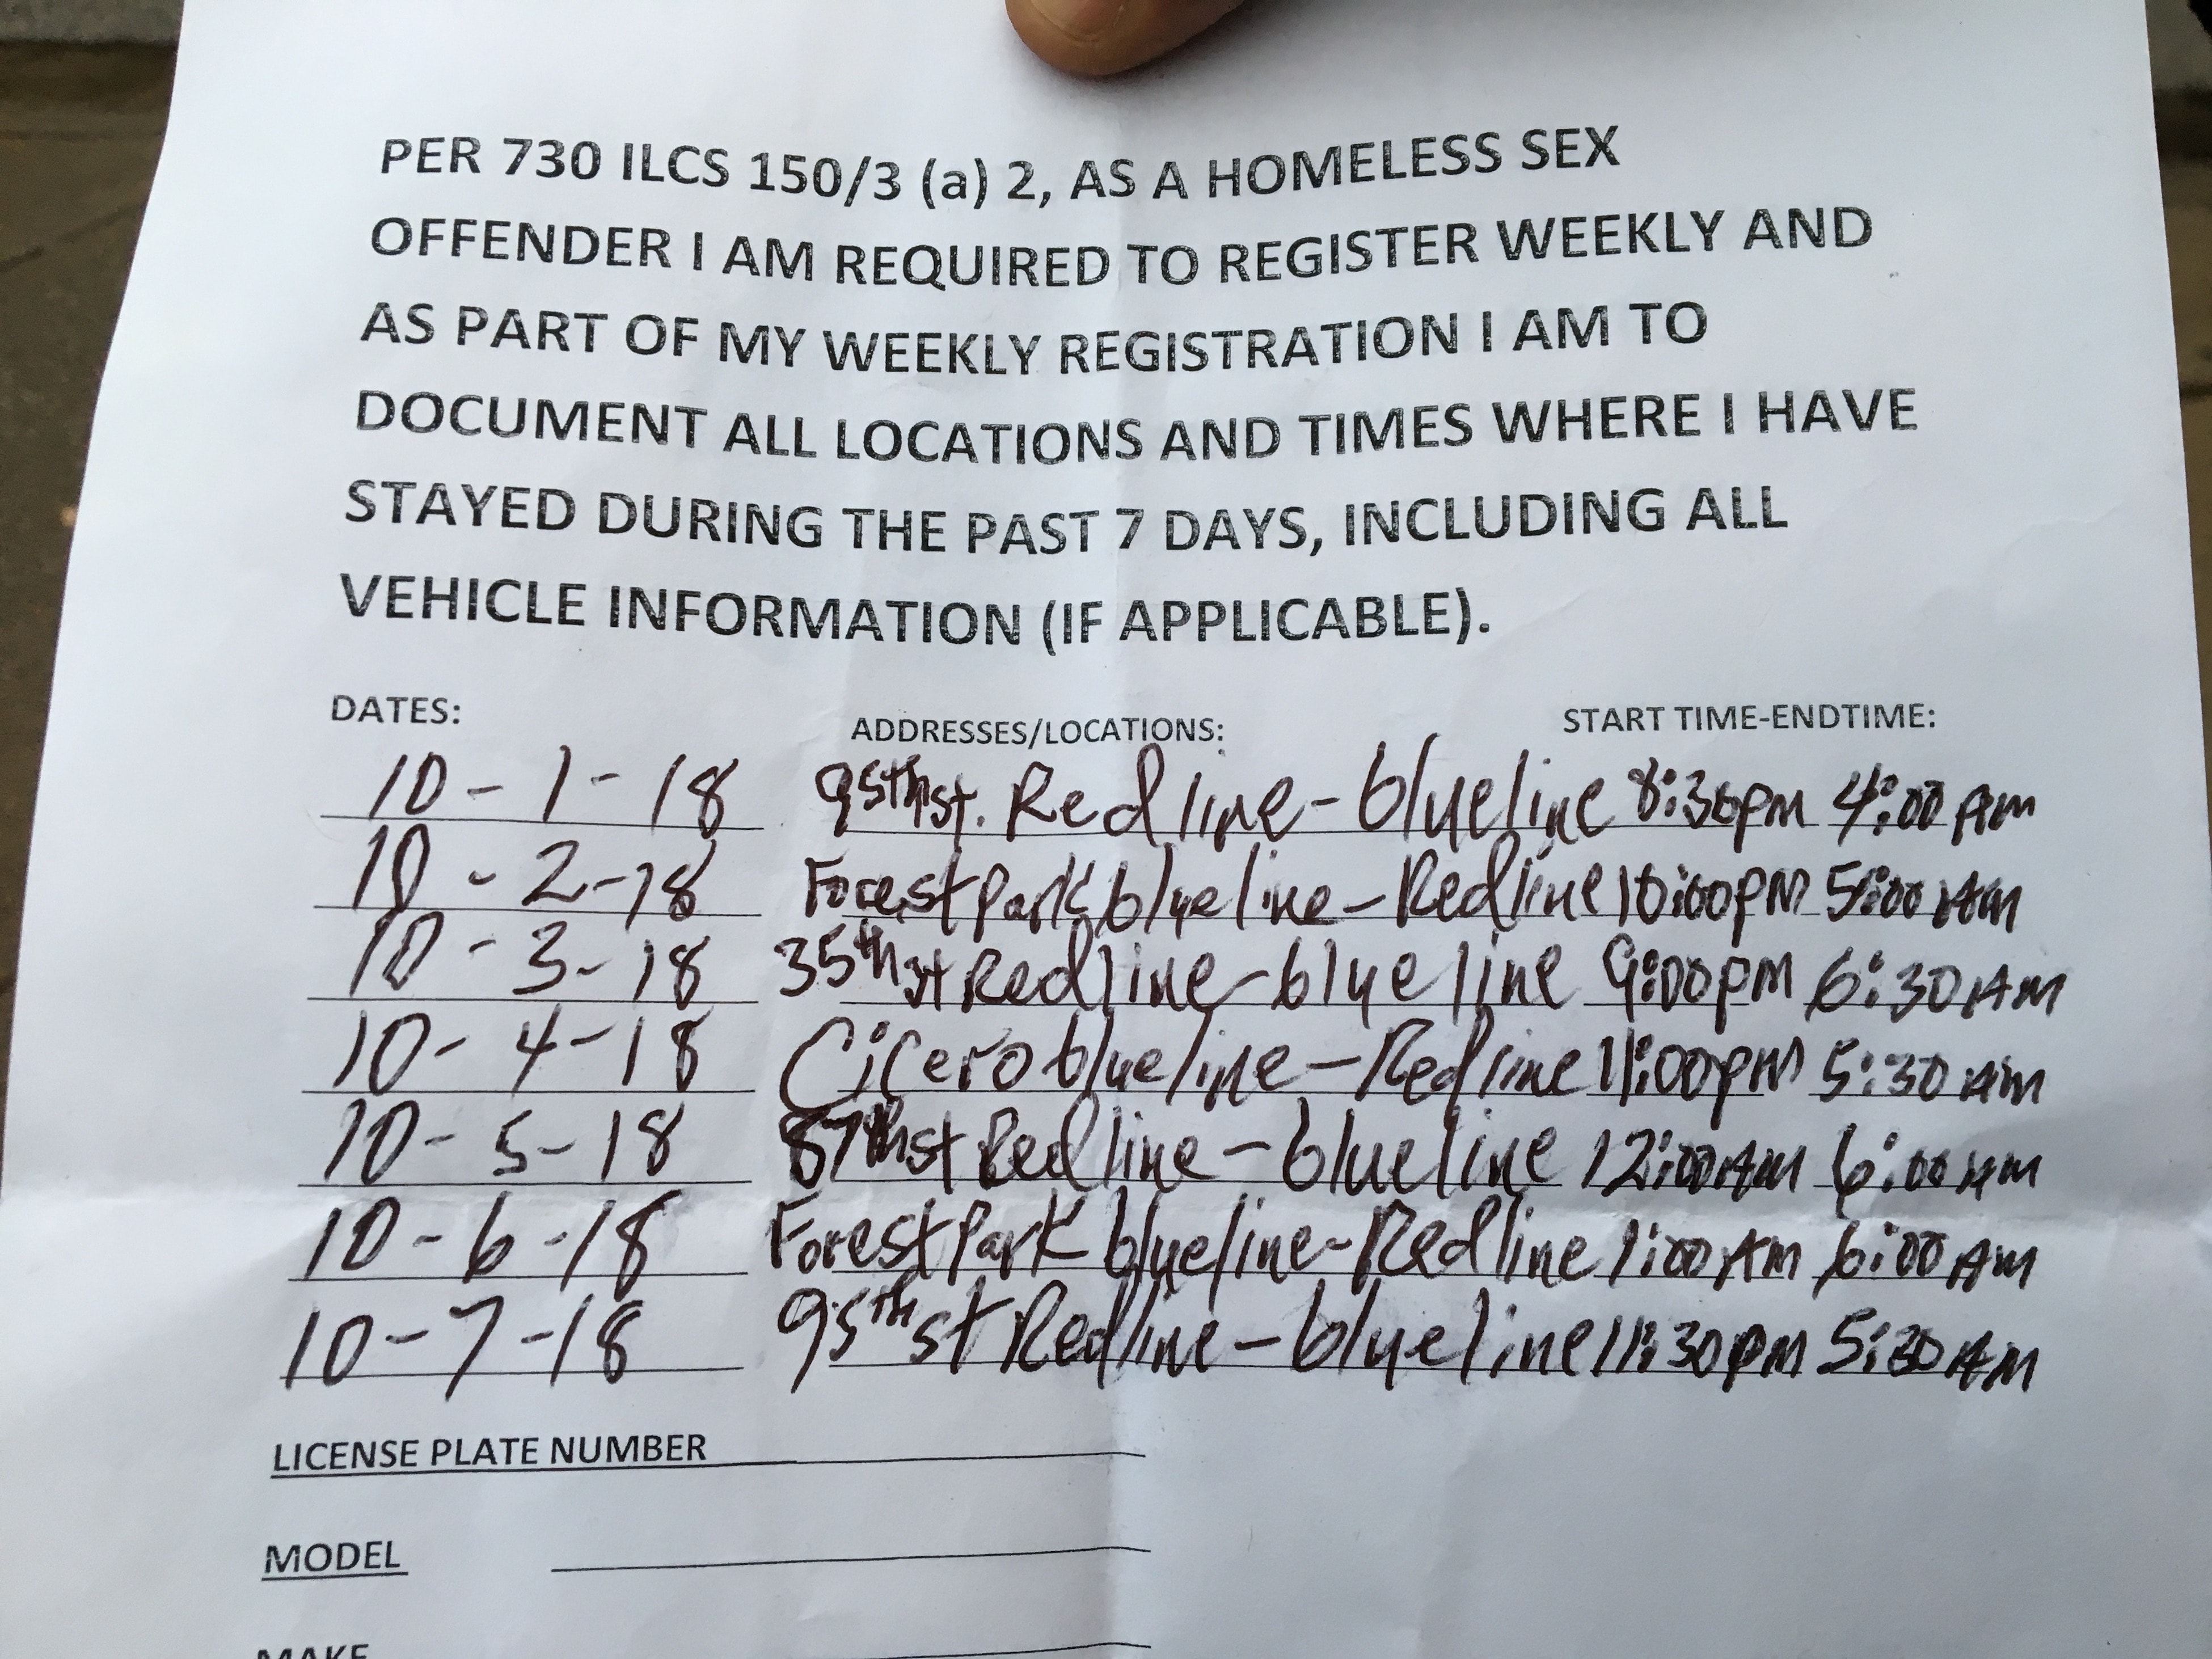 PER 730 ILCS 150/3 (a) 2, AS A HOMELESS SEX
OFFENDER I AM REQUIRED TO REGISTER WEEKLY AND
AS PART OF MY WEEKLY REGISTRATION I AM TO
DOCUMENT ALL LOCATIONS AND TIMES WHERE I HAVE
STAYED DURING THE PAST 7 DAYS, INCLUDING ALL
VEHICLE INFORMATION (IF APPLICABLE).
DATES: ADDRESSES/LOCATIONS: START TIME-ENDTIME:
10-1-18 95th st. Red line-blueline 8:30pm 4:00 Am
10-2-18 Forest Park blueline-Redline 10:00pm 5:00 Am
10-3-18 35th st Redline-blueline 9:00pm 6:30 AM
10-4-18 Cicero blueline-Redline 11:00pm 5:30 Am
10-5-18 87th st Redline-blueline 12:00Am 6:00 Am
10-6-18 Forest Park blueline-Redline 1:00 Am 6:00 Am
10-7-18 95th st Redline-blueline 11:30pm 5:30 AM
LICENSE PLATE NUMBER
MODEL
MAKE